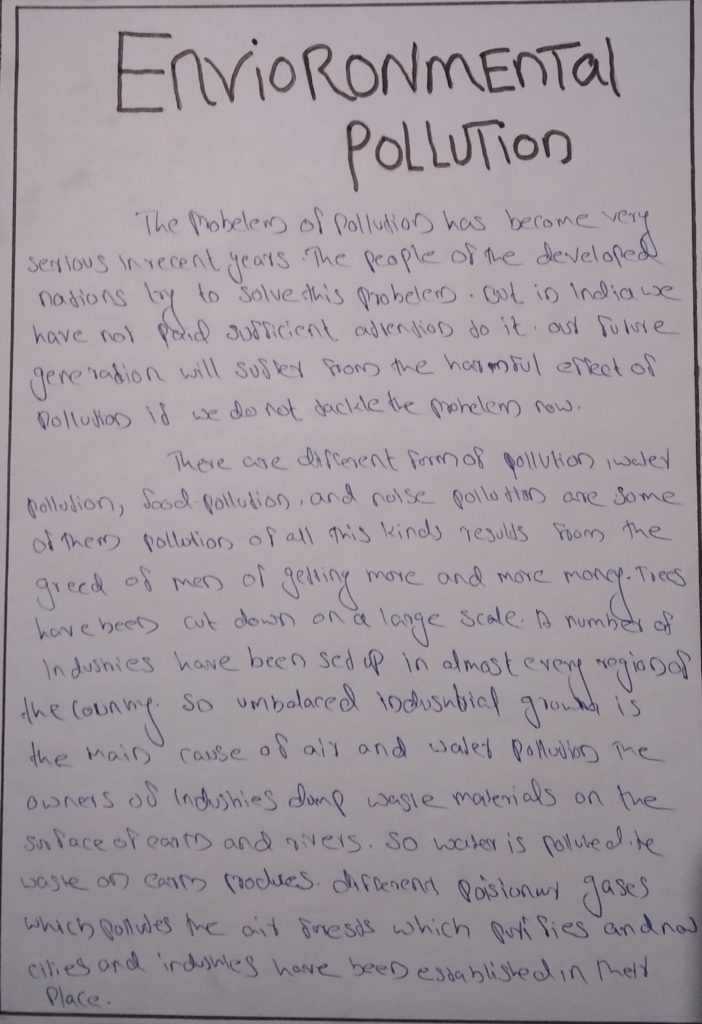 EnvioRonmental
Pollution
The Probelem of Pollution has become very
serious in recent years. The people of the developed
nations try to solve this probelem. But in India we
have not paid sufficient attention to it. our future
generation will suffer from the harmful effect of
Pollution if we do not tackle the probelem now.
There are different form of pollution, water
pollution, food pollution, and noise pollution are some
of them pollution of all this kinds results from the
greed of men of getting more and more money. Trees
have been cut down on a large scale. A number of
Industries have been set up in almost every region of
the country. So umbalaced industrial growth is
the main cause of air and water pollution The
owners of Industries dump waste materials on the
surface of earth and rivers. So water is polluted. the
waste on earth produces. different poisionus gases
which pollutes the air forests which purifies and now
cities and industries have been established in their
Place.